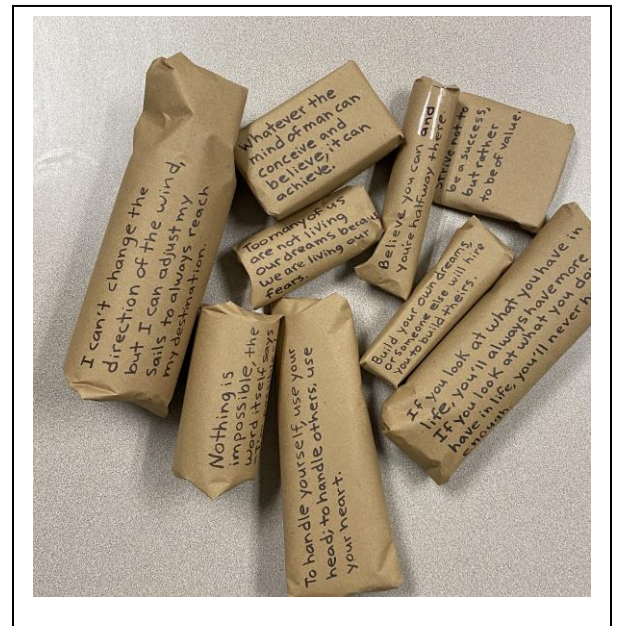 I can't change the
direction of the wind,
but I can adjust my
sails to always reach
my destination.
Whatever the
mind of man can
conceive and
believe, it can
achieve.
Too many of us
are not living
our dreams because
we are living our
fears.
Believe you can and
you're halfway there.
Strive not to
be a success,
but rather
to be of value.
Build your own dreams,
or someone else will hire
you to build theirs.
If you look at what you have in
life, you'll always have more
If you look at what you don
have in life, you'll never h
enough.
Nothing is
impossible, the
word itself says
To handle yourself, use your
head; to handle others, use
your heart.